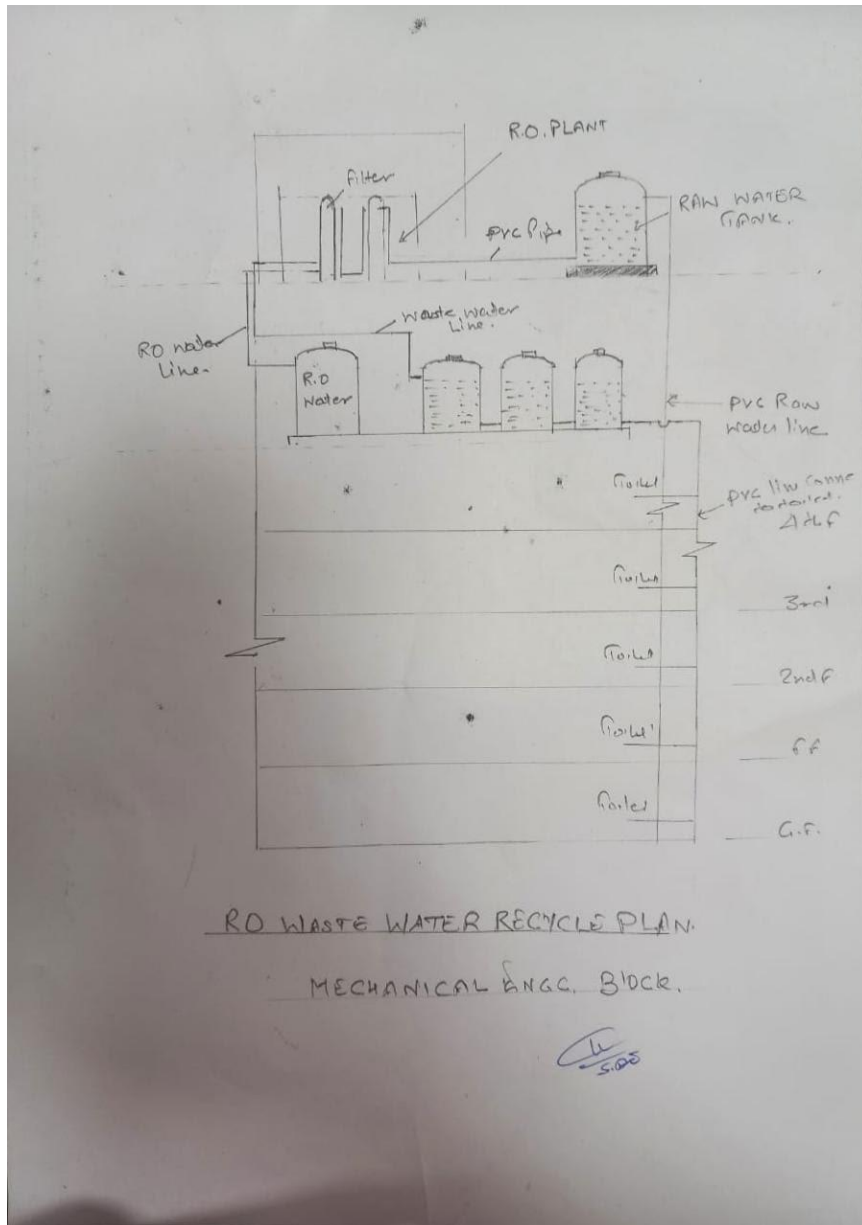 R.O. PLANT
Filter
PVC Pipe
RAW WATER
TANK.
Waste water
Line.
RO water
Line.
R.O
Water
PVC Raw
water line
Toilet
PVC line
4th F
Toilet
3rd
Toilet
2nd F
Toilet
FF
Toilet
G.F.
RO WASTE WATER RECYCLE PLAN.
MECHANICAL ENGG. BLOCK.